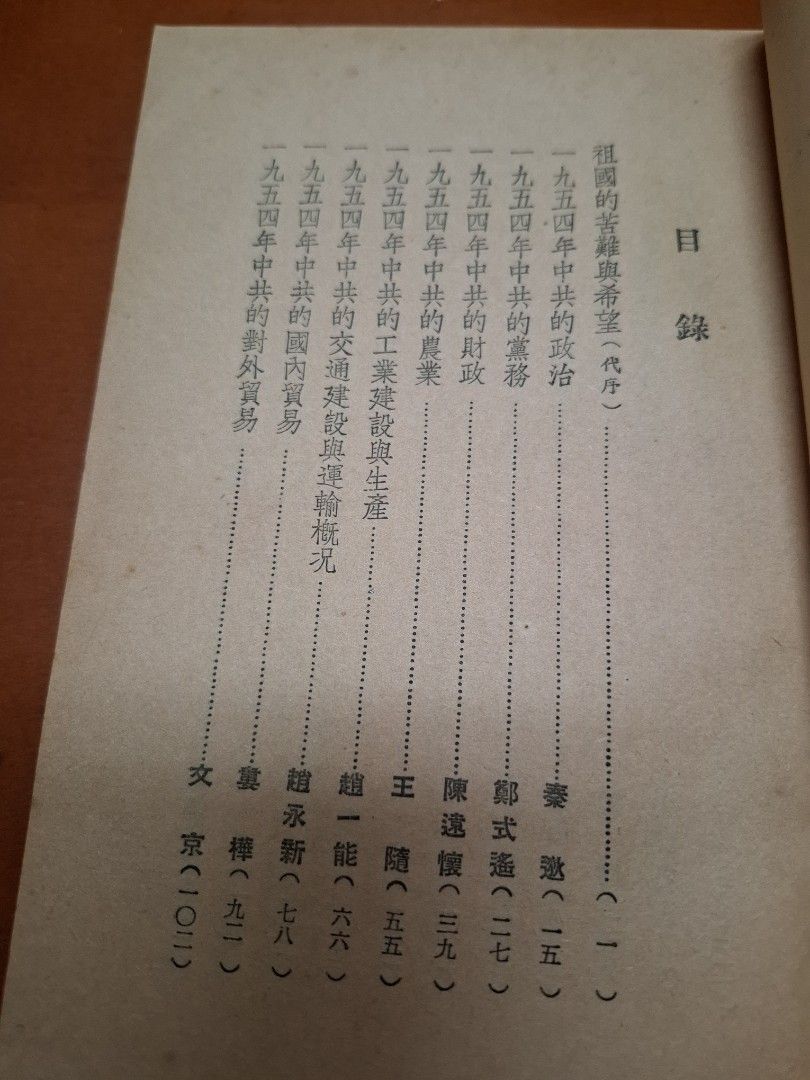 目錄
祖國的苦難與希望(代序)……………(一)
一九五四年中共的政治……………秦逖(一五)
一九五四年中共的黨務……………鄭式遙(二七)
一九五四年中共的財政……………陳遠懷(三九)
一九五四年中共的農業……………王隨(五五)
一九五四年中共的工業建設與生產……………趙一能(六六)
一九五四年中共的交通建設與運輸概況……………趙永新(七八)
一九五四年中共的國內貿易……………婁樺(九二)
一九五四年中共的對外貿易……………文京(一〇二)